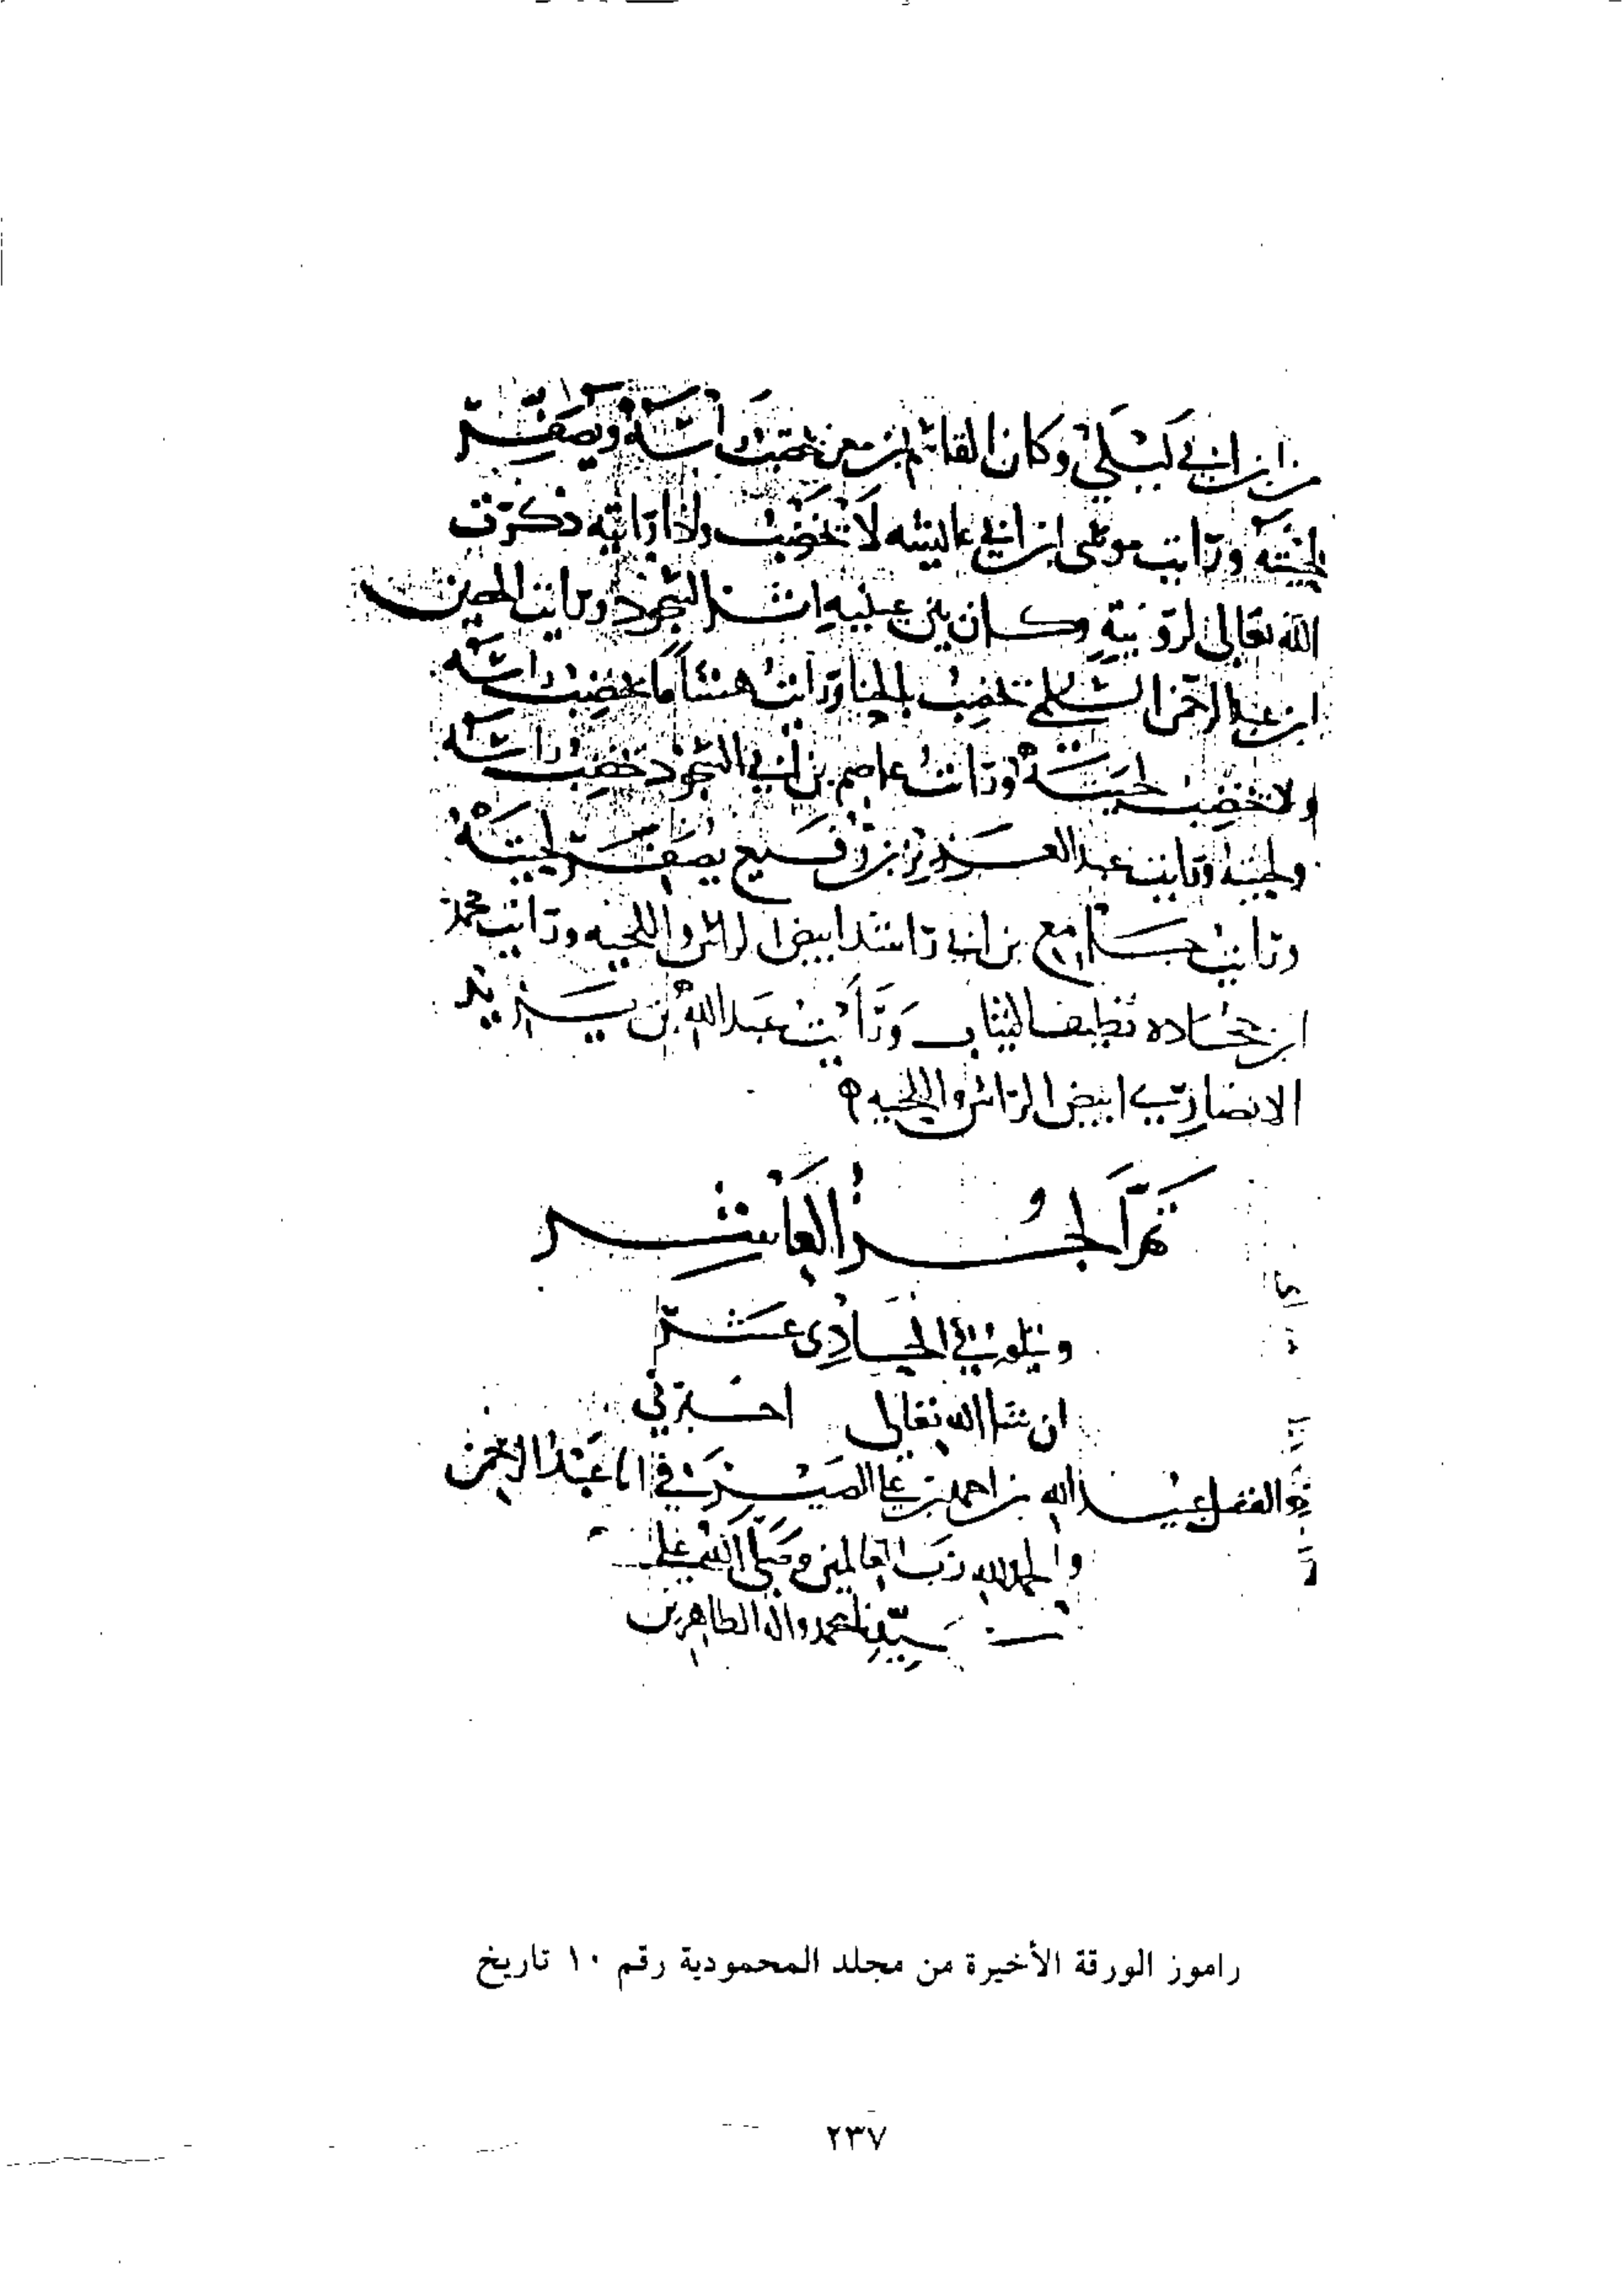 من ابن ابي ليلى وكان القاسم بن معن يخضب راسه ويصفر
لحيته ورايت موسى ابن ابي عايشه لا يخضب واذا رايته ذكرت
الله تعالى لرؤيته وكان بين عينيه اثر السجود ورايت الحصين
ابن عبد الرحمن السلمي يخضب بالحنا ورايت هشاما يخضب راسه
ولا يخضب لحيته ورايت عاصم بن ابي النجود يخضب راسه
ولحيته ورايت عبد العزيز بن رفيع يصفر لحيته
ورايت جامع بن ابي راشد ابيض الراس واللحيه ورايت محمد
ابن جحاده نظيف الثياب ورأيت عبد الله بن يزيد
الانصاري ابيض الراس واللحيه
تم الجزؤ العاشر
ويتلوه في الحادي عشر
ان شا الله تعالى اخبرني
ابو الفضل عبيد الله بن احمد بن علي الصيرفي انا عبد الرحمن
والحمد لله رب العالمين وصلى الله على
سيدنا محمد واله الطاهرين
راموز الورقة الأخيرة من مجلد المحمودية رقم ١٠ تاريخ
٢٣٧